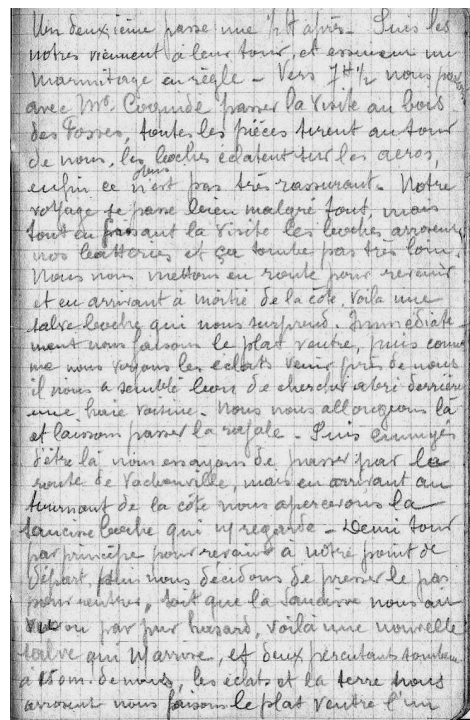 Un deuxième passe une ½ H après. Puis les
nôtres viennent à leur tour, et essuient un
marmitage en règle - Vers 7H½ nous partons
avec Mr. passer la visite au bois
des Fosses, toutes les pièces tirent autour
de nous, les boches éclatent sur les aeros,
enfin ce n'est pas très rassurant. Notre
voyage se passe bien malgré tout, mais
tout en passant la visite les boches arrosent
nos batteries et ça tombe pas très loin.
Nous nous mettons en route pour revenir
et en arrivant à moitié de la côte, voilà une
salve boche qui nous surprend. Immédiate-
ment nous faisons le plat ventre, puis comme
me nous voyons les éclats venir près de nous
il nous a semblé bon de chercher abri derrière
une haie voisine. Nous nous allongeons là
et laissons passer la rafale - Puis ennuyés
d'être là nous essayons de passer par la
route de Vacherauville, mais en arrivant au
tournant de la côte nous apercevons la
saucisse boche qui ns regarde - Demi tour
par principe pour revenir à notre point de
départ, puis nous décidons de presser le pas
pour rentrer, soit que la saucisse nous ait
vu ou par pur hasard, voilà une nouvelle
salve qui ns arrive, et deux percutants tombent
à 15m. de nous, les éclats et la terre nous
arrosent nous faisons le plat ventre l'un